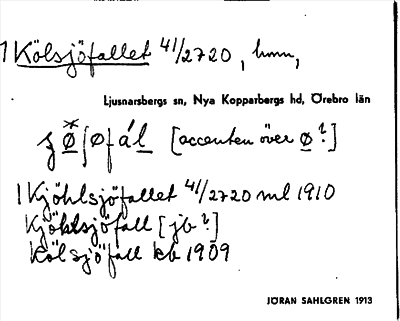 1 Kölsjöfallet 41/2720, hmn,
Ljusnarsbergs sn, Nya Kopparbergs hd, Örebro län
[accenten över ø?]
1 Kjöhlsjöfallet 41/2720 ml 1910
Kjöhlsjöfall [jb?]
Kölsjöfall kb 1909
JÖRAN SAHLGREN 1913